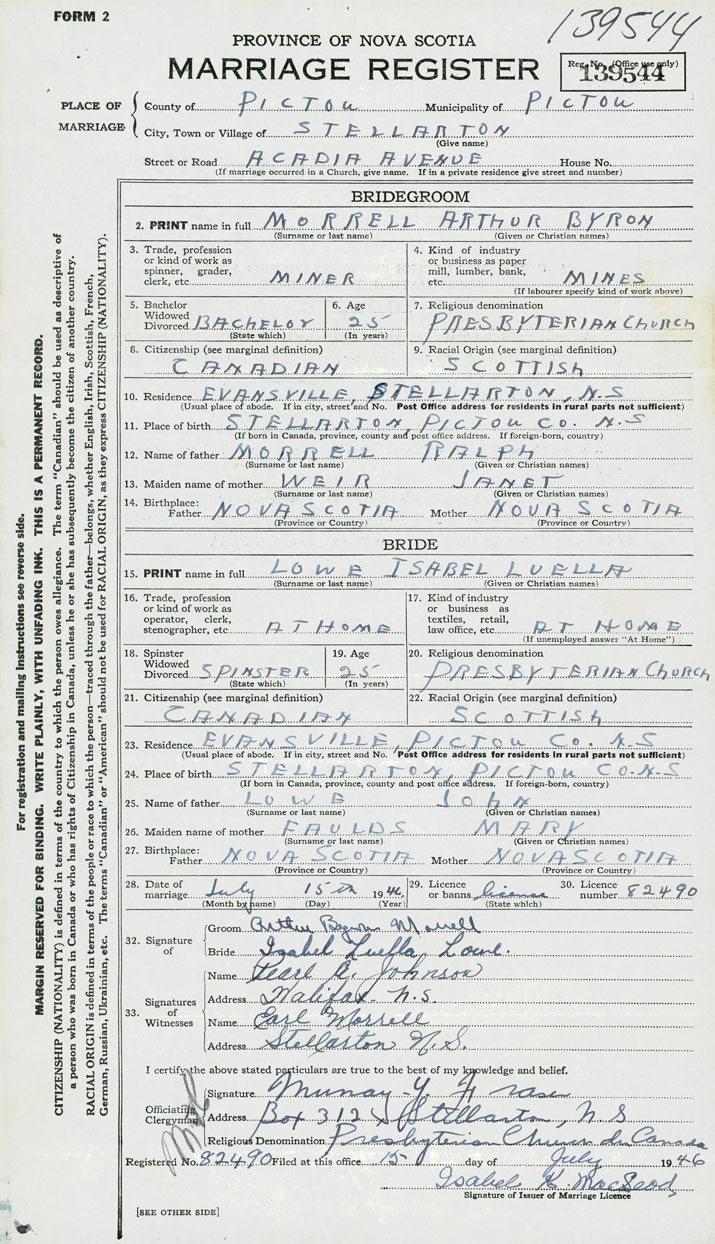 FORM 2
139544
PROVINCE OF NOVA SCOTIA
MARRIAGE REGISTER
Reg. No. (Office use only)
139544
PLACE OF MARRIAGE
County of PICTOU Municipality of PICTOU
City, Town or Village of STELLARTON
(Give name)
Street or Road ACADIA AVENUE House No.
(If marriage occurred in a Church, give name. If in a private residence give street and number)
BRIDEGROOM
2. PRINT name in full MORRELL ARTHUR BYRON
(Surname or last name) (Given or Christian names)
3. Trade, profession or kind of work as spinner, grader, clerk, etc. MINER
4. Kind of industry or business as paper mill, lumber, bank, etc. MINES
(If labourer specify kind of work above)
5. Bachelor Widowed Divorced BACHELOR
(State which)
6. Age 25
(In years)
7. Religious denomination
PRESBYTERIAN CHURCH
8. Citizenship (see marginal definition)
CANADIAN
9. Racial Origin (see marginal definition)
SCOTTISH
10. Residence EVANSVILLE, STELLARTON, N.S
(Usual place of abode. If in city, street and No. Post Office address for residents in rural parts not sufficient)
11. Place of birth STELLARTON, PICTOU CO. N.S
(If born in Canada, province, county and post office address. If foreign-born, country)
12. Name of father MORRELL RALPH
(Surname or last name) (Given or Christian names)
13. Maiden name of mother WEIR JANET
(Surname or last name) (Given or Christian names)
14. Birthplace: Father NOVA SCOTIA Mother NOVA SCOTIA
(Province or Country) (Province or Country)
BRIDE
15. PRINT name in full LOWE ISABEL LUELLA
(Surname or last name) (Given or Christian names)
16. Trade, profession or kind of work as operator, clerk, stenographer, etc. AT HOME
17. Kind of industry or business as textiles, retail, law office, etc. AT HOME
(If unemployed answer "At Home")
18. Spinster Widowed Divorced SPINSTER
(State which)
19. Age 25
(In years)
20. Religious denomination
PRESBYTERIAN CHURCH
21. Citizenship (see marginal definition)
CANADIAN
22. Racial Origin (see marginal definition)
SCOTTISH
23. Residence EVANSVILLE, PICTOU CO. N.S
(Usual place of abode. If in city, street and No. Post Office address for residents in rural parts not sufficient)
24. Place of birth STELLARTON, PICTOU CO. N.S
(If born in Canada, province, county and post office address. If foreign-born, country)
25. Name of father LOWE JOHN
(Surname or last name) (Given or Christian names)
26. Maiden name of mother FAULDS MARY
(Surname or last name) (Given or Christian names)
27. Birthplace: Father NOVA SCOTIA Mother NOVA SCOTIA
(Province or Country) (Province or Country)
28. Date of marriage July 15th 1946
(Month by name) (Day) (Year)
29. Licence or banns license
(State which)
30. Licence number 82490
32. Signature of
Groom Arthur Byron Morrell
Bride Isabel Luella Lowe.
33. Signatures of Witnesses
Name Pearl A. Johnson
Address Halifax. N.S.
Name Earl Morrell
Address Stellarton N.S.
I certify the above stated particulars are true to the best of my knowledge and belief.
Officiating Clergyman
Signature Murray Y Fraser
Address Box 312, Stellarton, N S
Religious Denomination Presbyterian Church in Canada
Registered No. 82490 Filed at this office 15 day of July 1946
Isabel K. MacLeod,
Signature of Issuer of Marriage Licence
[SEE OTHER SIDE]
For registration and mailing instructions see reverse side.
MARGIN RESERVED FOR BINDING. WRITE PLAINLY, WITH UNFADING INK. THIS IS A PERMANENT RECORD.
CITIZENSHIP (NATIONALITY) is defined in terms of the country to which the person owes allegiance. The term "Canadian" should be used as descriptive of
a person who was born in Canada or who has rights of Citizenship in Canada, unless he or she has subsequently become the citizen of another country.
RACIAL ORIGIN is defined in terms of the people or race to which the person—traced through the father—belongs, whether English, Irish, Scottish, French,
German, Russian, Ukrainian, etc. The terms "Canadian" or "American" should not be used for RACIAL ORIGIN, as they express CITIZENSHIP (NATIONALITY).